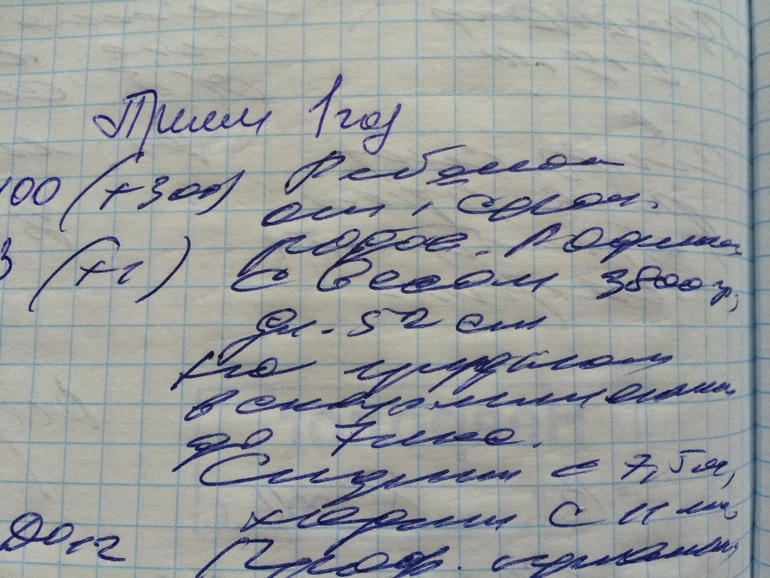 Прием 1 год
100 (+300) Ребенок
от 1 сроч.
3 (+1) родов. Родился
с весом 3800 гр,
дл. 52 см
На грудном
вскармливании
до 7 мес.
Сидит с 7,5 м,
ходит с 11 м,
Проф. прививки